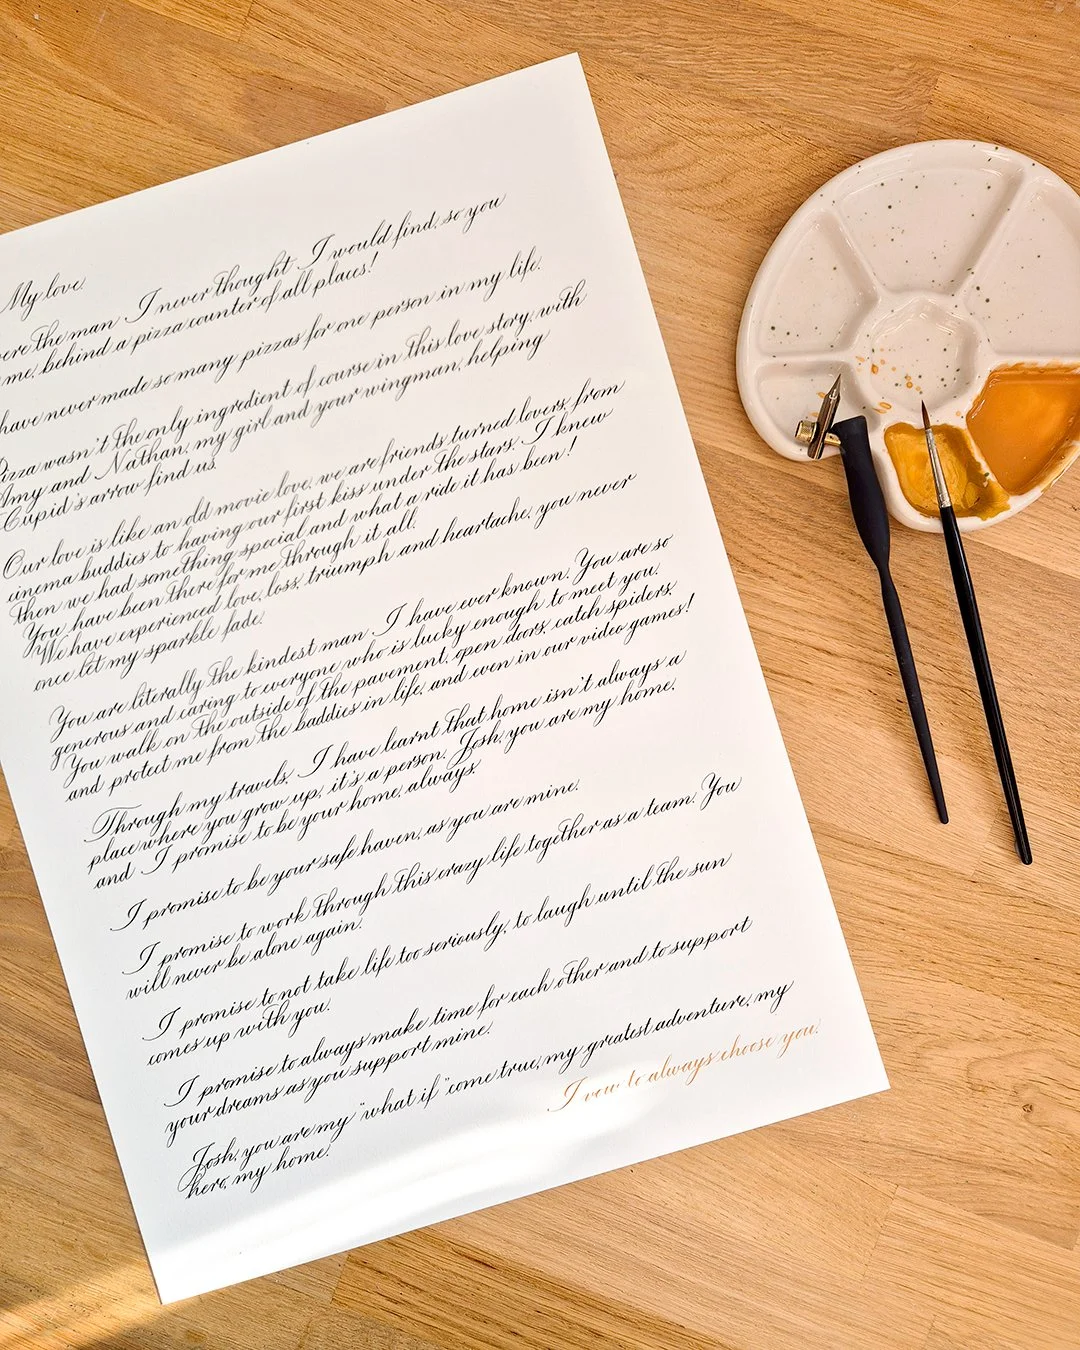 My love,
ere the man I never thought I would find, so you
me, behind a pizza counter of all places!
have never made so many pizzas for one person in my life.
Pizza wasn't the only ingredient of course in this love story, with
Amy and Nathan, my girl and your wingman, helping
Cupid's arrow find us.
Our love is like an old movie love, we are friends turned lovers, from
cinema buddies to having our first kiss under the stars. I knew
then we had something special and what a ride it has been!
You have been there for me through it all.
We have experienced love, loss, triumph and heartache, you never
once let my sparkle fade.
You are literally the kindest man I have ever known. You are so
generous and caring to everyone who is lucky enough to meet you.
You walk on the outside of the pavement, open doors, catch spiders,
and protect me from the baddies in life, and even in our video games!
Through my travels, I have learnt that home isn't always a
place where you grow up, it's a person. Josh, you are my home,
and I promise to be your home, always.
I promise to be your safe haven, as you are mine.
I promise to work through this crazy life together as a team. You
will never be alone again.
I promise to not take life too seriously, to laugh until the sun
comes up with you.
I promise to always make time for each other and to support
your dreams as you support mine.
Josh, you are my "what if" come true, my greatest adventure, my
hero, my home.
I vow to always choose you.